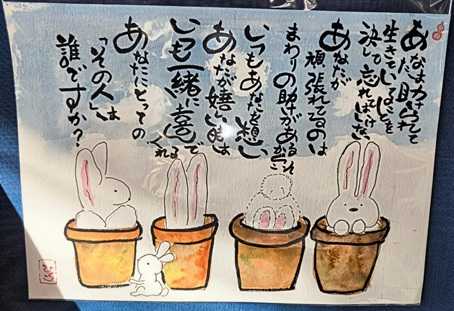 あなたは助けられて
生きていることを
決して忘れてはいけない
あなたが
頑張れてるのは
まわりの助けがあるからこそ
いつもあなたを想い
あなたが嬉しい時は
いつも一緒に喜んで
くれる
あなたにとっての
「その人」は
誰ですか?